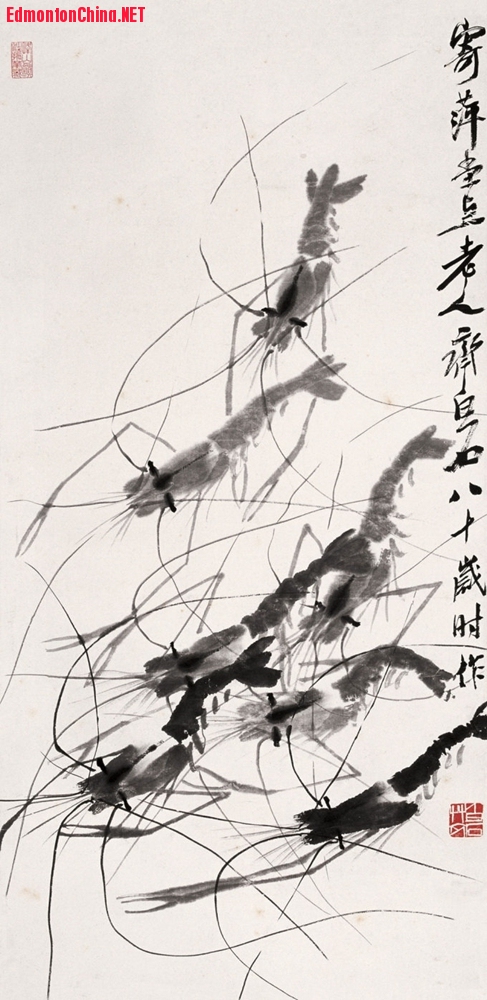 EdmontonChina.NET
寄萍堂上老人齊白石八十歲时作